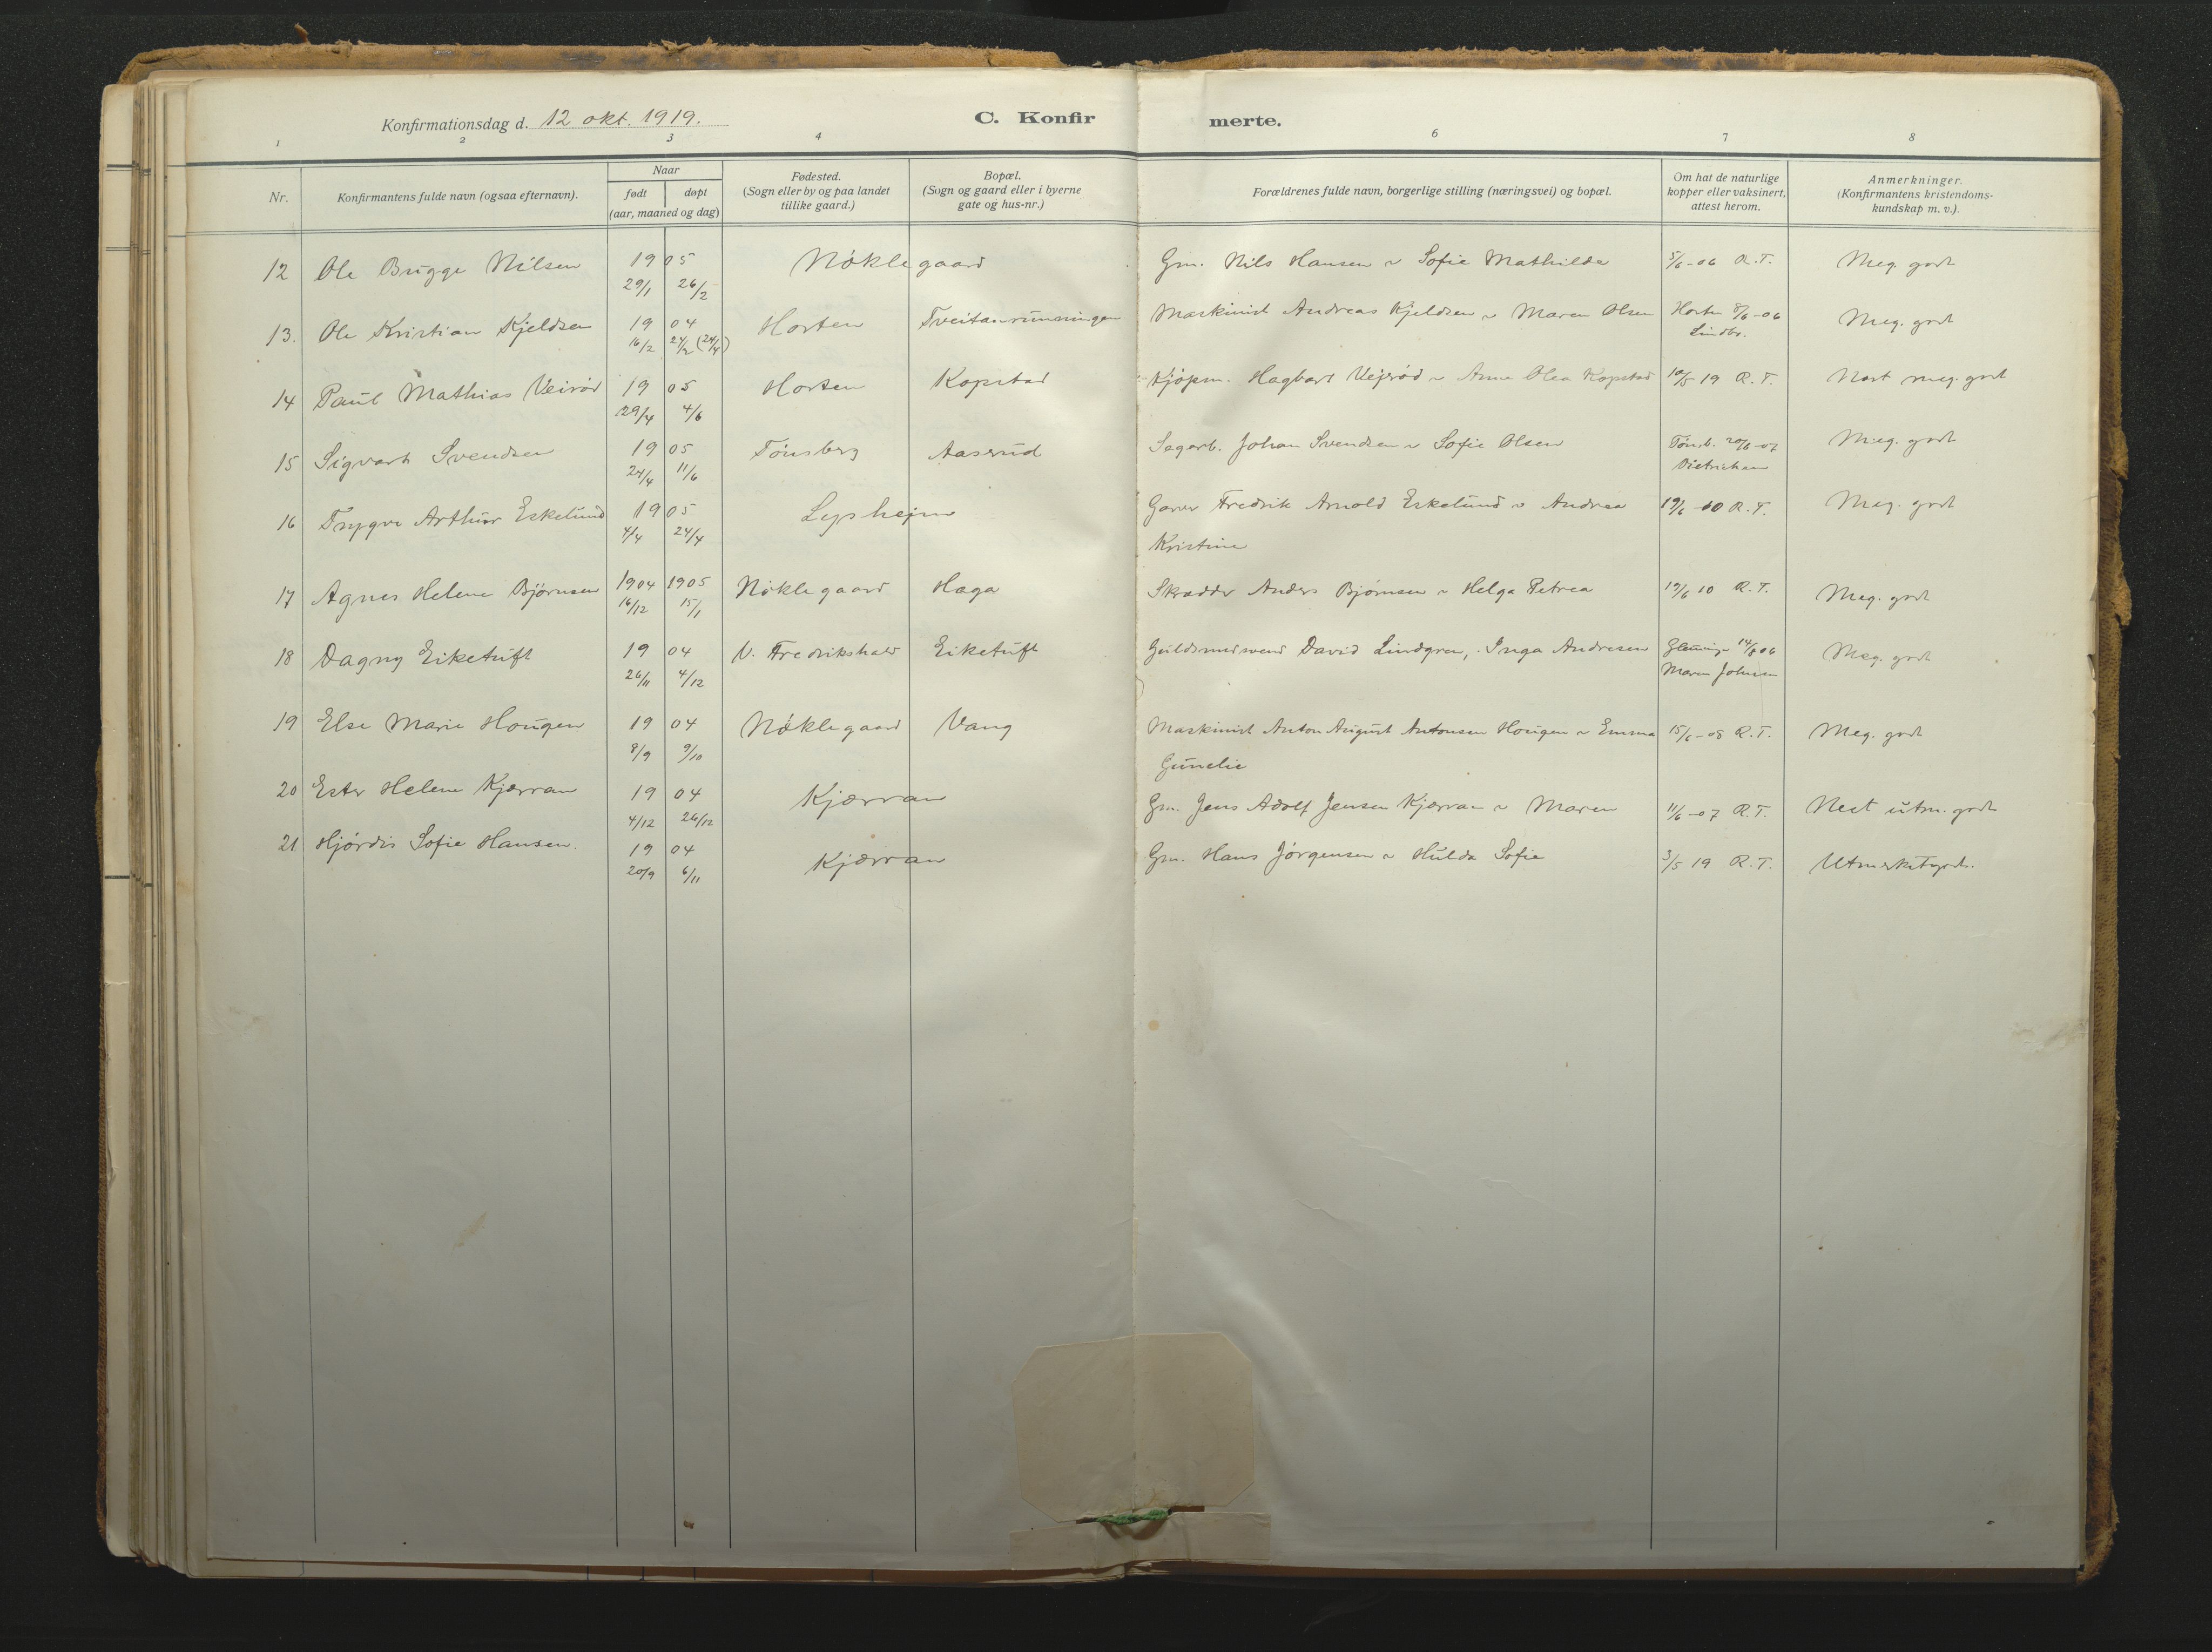 Konfirmationsdag d. 12 okt. 1919.
C. Konfirmerte.
1 2 3 4 6 7 8
Nr.
Konfirmantens fulde navn (ogsaa efternavn).
Naar
født døpt
(aar, maaned og dag)
Fødested.
(Sogn eller by og paa landet
tillike gaard.)
Bopæl.
(Sogn og gaard eller i byerne
gate og hus-nr.)
Forældrenes fulde navn, borgerlige stilling (næringsvei) og bopæl.
Om hat de naturlige
kopper eller vaksinert,
attest herom.
Anmerkninger.
(Konfirmantens kristendoms-
kundskap m. v.).
12 Ole Brygge Nilsen 1905 Nøklegaard Gm. Nils Hansen & Sofie Mathilde 5/6-06 R.T. Meg. godt
29/1 26/2
13. Ole Kristian Kjeldsen 1904 Horten Tveitanrunningen Maskinist Andreas Kjeldsen & Maren Olsen Horten 8/6-06 Meg. godt
16/2 24/2 (24/4) Lindbr.
14 Paul Mathias Veirød 1905 Horten Kopstad Kjøpm. Hagbart Vejrød & Anne Olea Kopstad 10/5 19 R.T. Næst meg. godt
29/4 4/6
15 Sigvart Svendsen 1905 Tönsberg Aasrud Sagarb. Johan Svendsen & Sofie Olsen Tönsb. 20/6-07 Meg. godt
24/4 11/6 Dietrichsen
16 Trygve Arthur Eskelund 1905 Lysheim Garver Fredrik Arnold Eskelund & Andrea 19/6-10 R.T. Meg. godt
4/4 24/4 Kristine
17 Agnes Helene Björnsen 1904 1905 Nøklegaard Haga Skrædder Anders Bjørnsen & Helga Petrea 19/6 10 R.T. Meg. godt
16/12 15/1
18 Dagny Eiketuft 1904 V. Fredrikshald Eiketuft Guldsmedsvend David Lindgren, Inga Andresen 14/8 06 Meg. godt
26/11 4/12 Maren Johnsen
19 Else Marie Hougen 1904 Nøklegaard Vang Maskinist Anton August Antonsen Hougen & Emma 15/6-08 R.T. Meg. godt
8/9 9/10 Gunelie
20 Ester Helene Kjærran 1904 Kjærran Gm. Jens Adolf Jensen Kjærran & Maren 11/6-07 R.T. Nest utm. godt
4/12 26/12
21 Hjørdis Sofie Hansen. 1904 Kjærran Gm. Hans Jørgensen & Hulda Sofie 3/5 19 R.T. Utmerket godt.
20/9 6/11